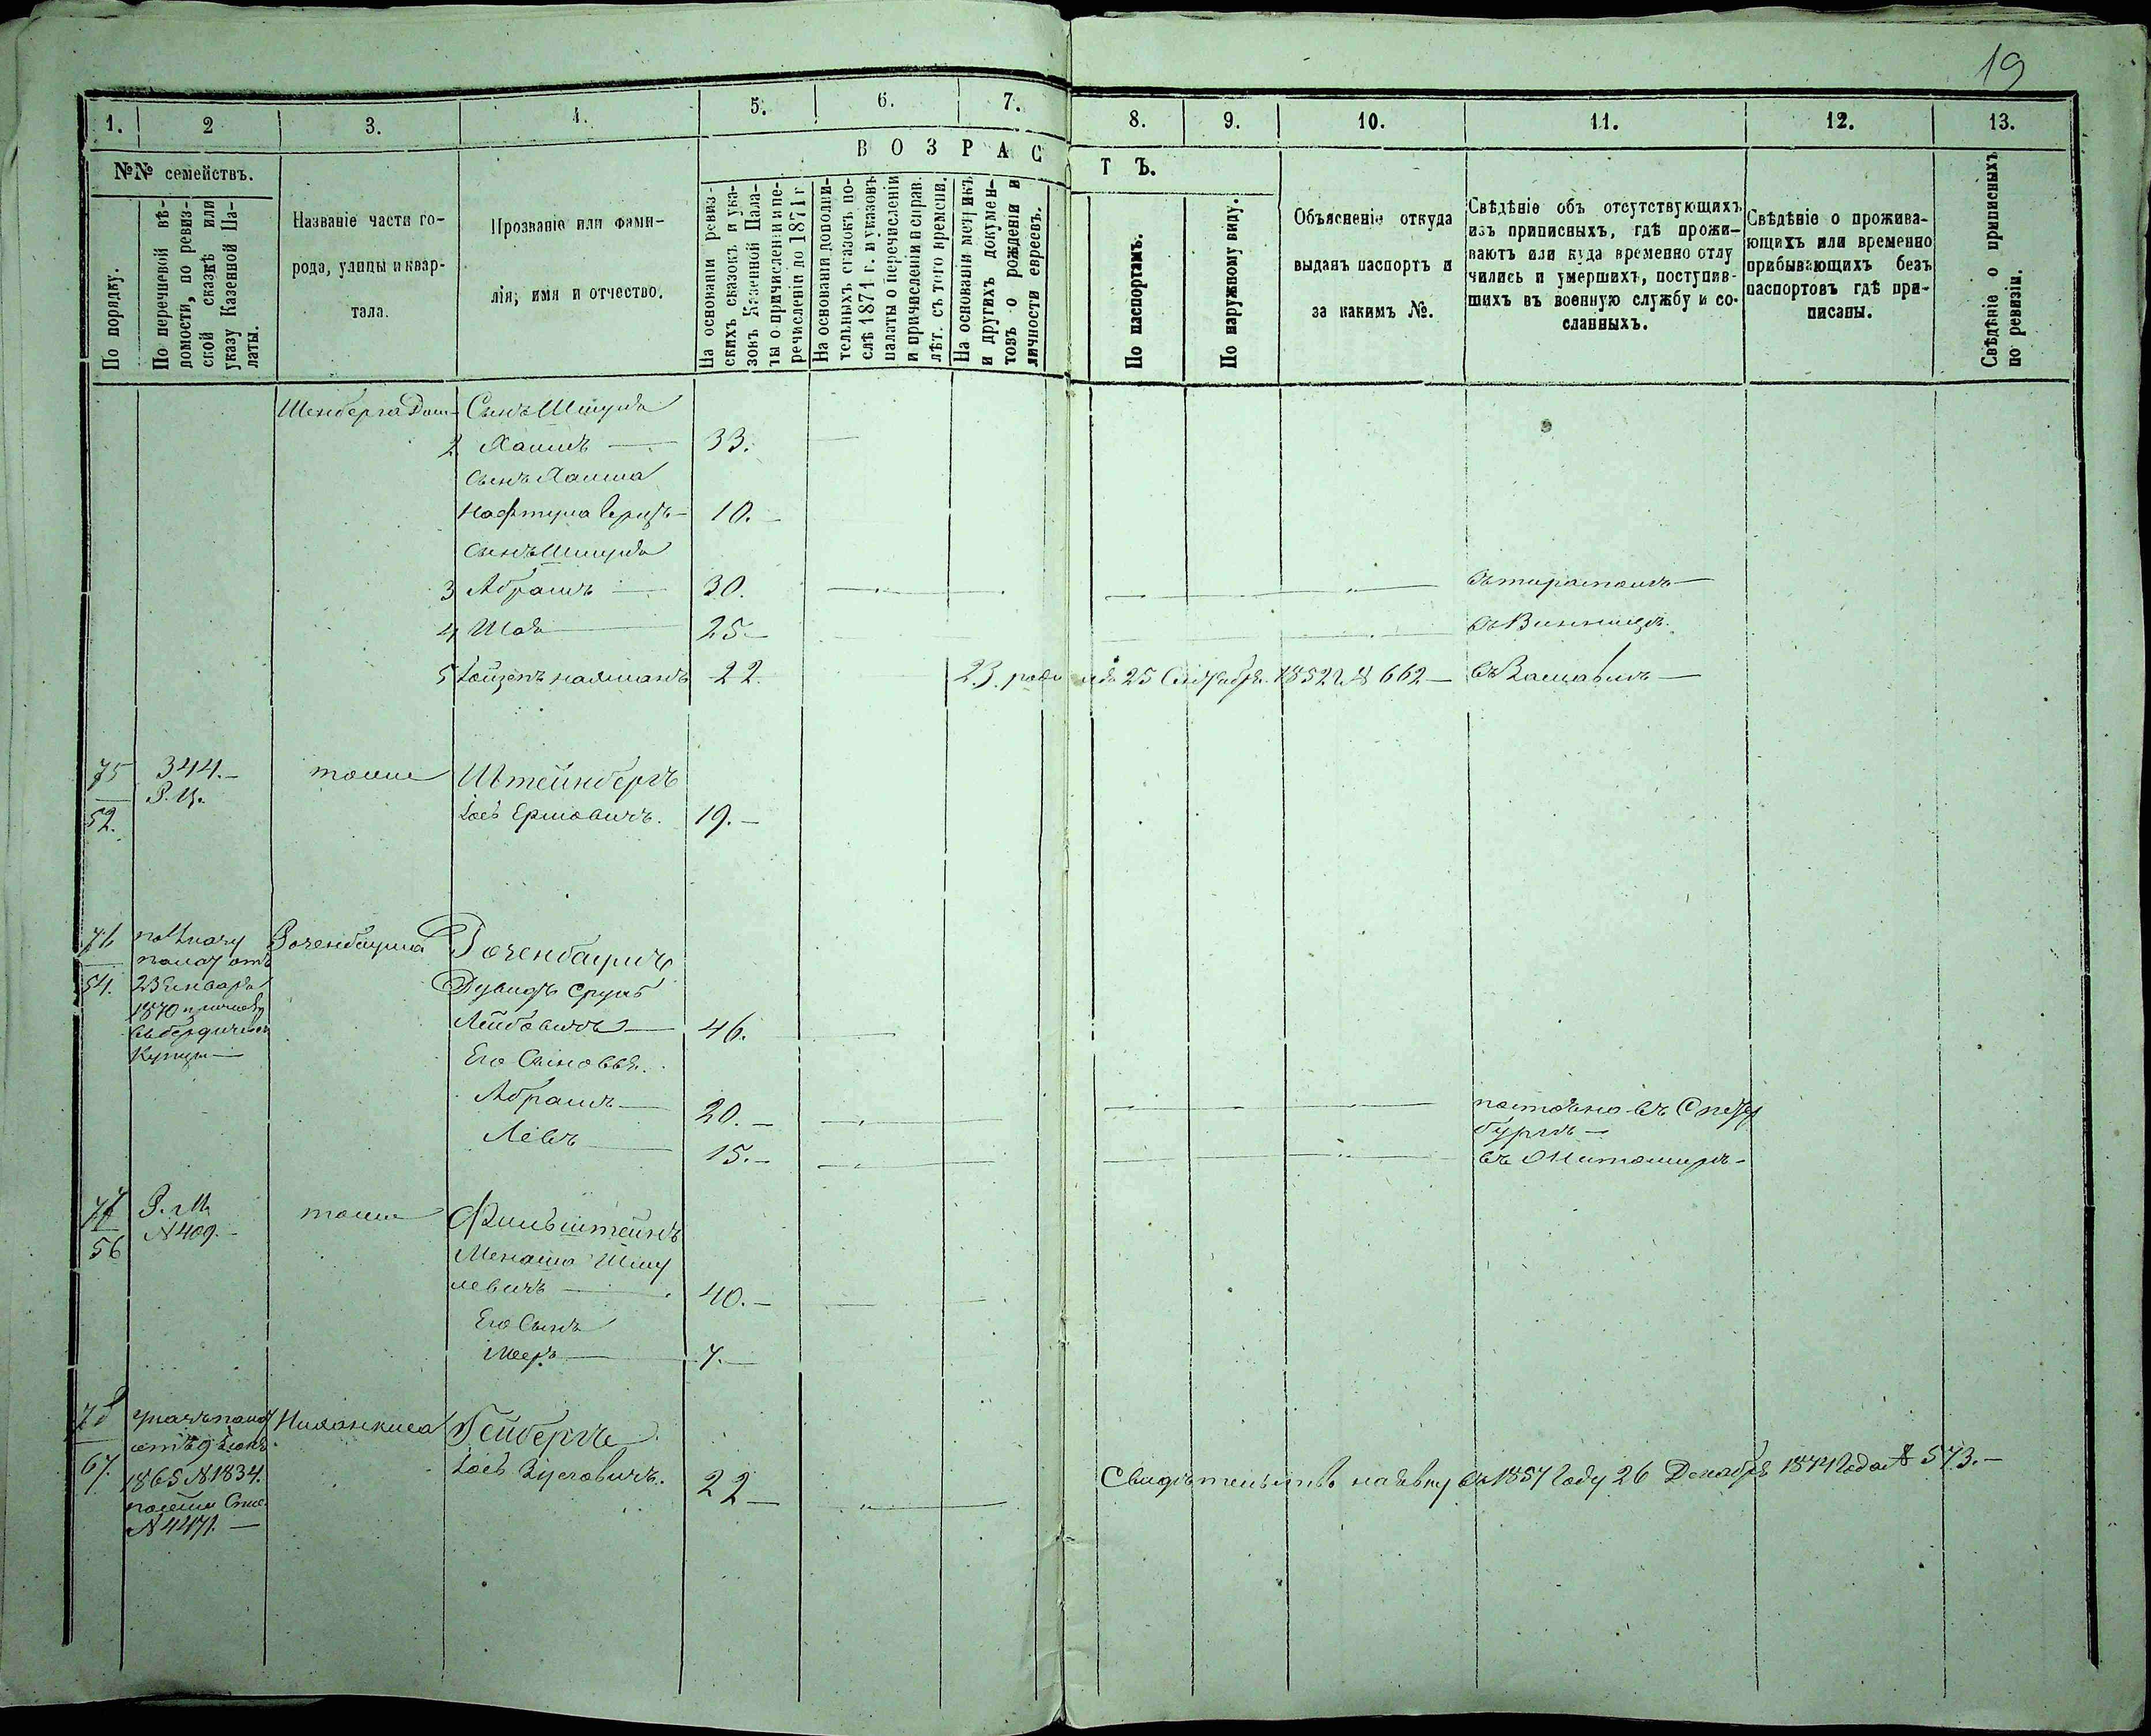 19
1. 2 3. 4. 5. 6. 7. 8. 9. 10. 11. 12. 13.
№№ семействъ.
По порядку.
По перечневой вѣ-
домости, по ревиз-
ской сказкѣ или
указу Казенной Па-
латы.
Названіе части го-
рода, улицы и квар-
тала.
Прозваніе или фами-
лія, имя и отчество.
В О З Р А С Т Ъ.
На основаніи ревиз-
скихъ сказокъ и ука-
зокъ Казенной Пала-
ты о причисленіи и пе-
речисленіи по 1871 г
На основаніи дополни-
тельныхъ сказокъ по-
слѣ 1871 г. и указовъ
палаты о перечисленіи
и причисленіи и справ.
лѣт. съ того времени.
На основаніи метрикъ
и другихъ докумен-
товъ о рожденіи и
личности евреевъ.
По паспортамъ.
По наружному виду.
Объясненіе откуда
выданъ паспортъ и
за какимъ №.
Свѣдѣніе объ отсутствующихъ
изъ приписныхъ, гдѣ прожи-
ваютъ или куда временно отлу
чились и умершихъ, поступив-
шихъ въ военную службу и со-
сланныхъ.
Свѣдѣніе о прожива-
ющихъ или временно
прибывающихъ безъ
паспортовъ гдѣ при-
писаны.
Свѣдѣніе о приписныхъ
по ревизіи.
Шенберга Дом Сынъ Шмуля
2 Хаимъ 33.
Сынъ Хаима
Нафтула Герцъ 10.
Сынъ Шмуля
3 Абрамъ 30.
4 Шая 25 въ Винницѣ.
5 22. 23. 25 1852 № 662
75 344. тоже Штейнбергъ
52. Р. М.
Іось Ершовичъ. 19.
76 по Указу Розенбаума Розенбаумъ
54. палат отъ
23 Января Дувидъ Сруль
1870
Лейбовичъ 46.
Его Сыновья.
Абрамъ 20.
Левъ 15. въ Житомирѣ
77 Р. М. тоже Фильштейнъ
56 № 409.
Менаша Шму
левичъ 40.
Его Сынъ
Мееръ 7.
78 Гейбергъ
67. 1865 № 1834. Іось 22 Свидѣтельство на явку въ 1857 Году 26 Декабря 1874 Года № 573.
№ 4471.